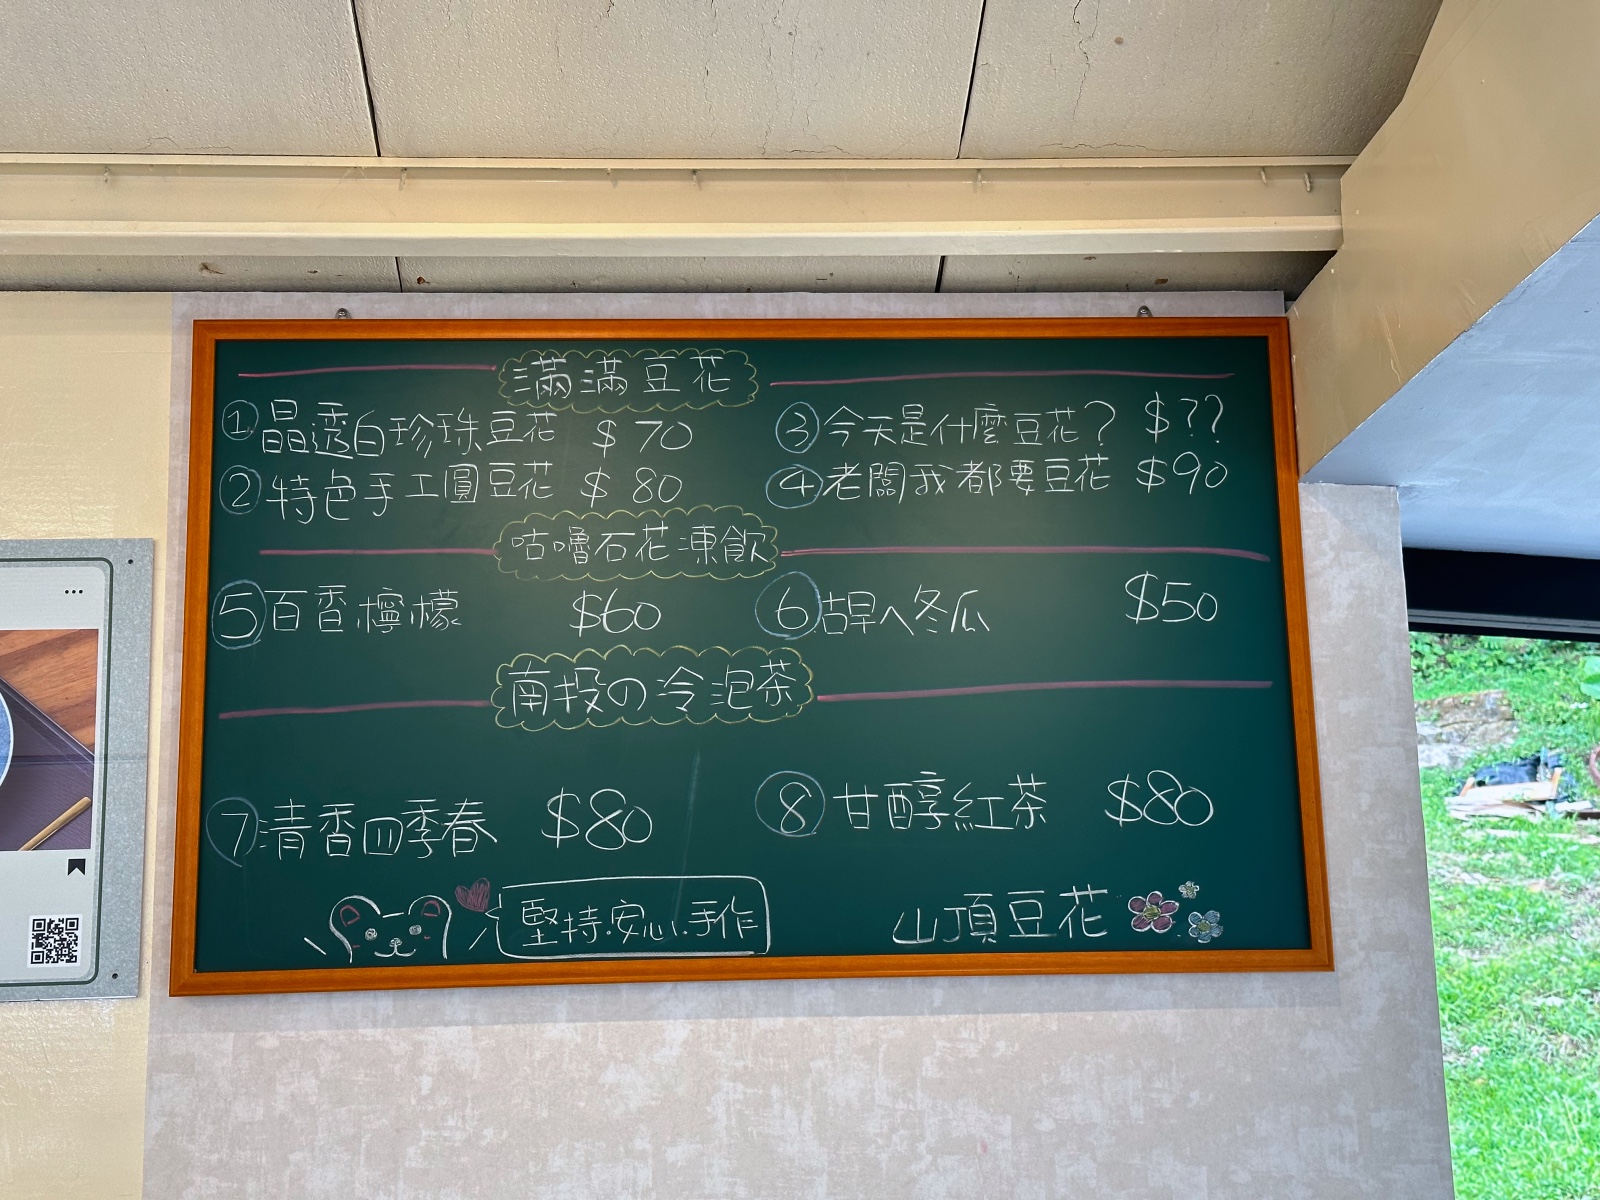 滿滿豆花
① 晶透白珍珠豆花 $70
③ 今天是什麼豆花？ $??
② 特色手工圓豆花 $80
④ 老闆我都要豆花 $90
咕嚕石花凍飲
⑤ 百香檸檬 $60
⑥ 古早ㄟ冬瓜 $50
南投の冷泡茶
⑦ 清香四季春 $80
⑧ 甘醇紅茶 $80
堅持.安心.手作
山頂豆花